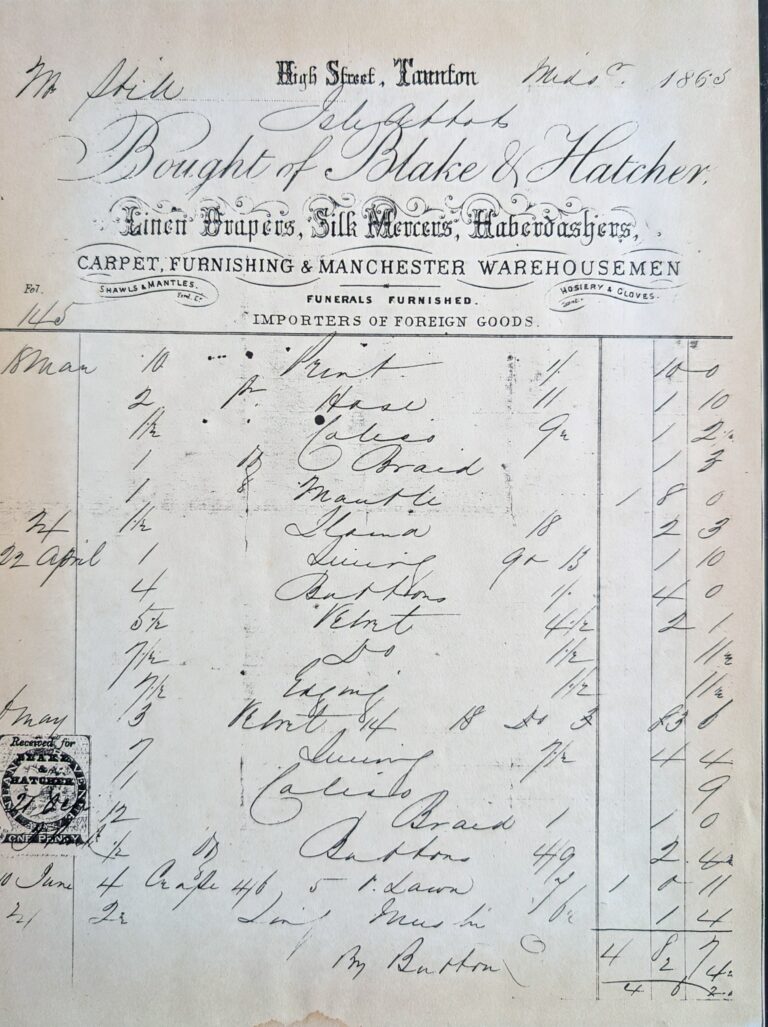 Mr Still High Street, Taunton Midsr. 1865
Isle Abbots
Bought of Blake & Hatcher.
Linen Drapers, Silk Mercers, Haberdashers,
CARPET, FURNISHING & MANCHESTER WAREHOUSEMEN
SHAWLS & MANTLES. HOSIERY & GLOVES.
Fol. FUNERALS FURNISHED.
145 IMPORTERS OF FOREIGN GOODS.
18 Mar 10 Print 1/ 10 0
2 pr Hose 11 1 10
1½ Calico 9½ 1 2
1 Braid 1 3
1 Mantle 1 8 0
1½ Llama 18 2 3
22 April 1 Lining 1 10
4 Buttons 1/ 4 0
5½ Velvet 4½ 2 1
7½ Do 1½ 11½
7½ Edging 1½ 11½
May 3 Velvet 18 Do 3 6
7 Lining 7½ 4 4
1 Calico 9
12 Braid 1 1 0
½ Buttons 4/9 2 4½
10 June 4 Crape 4/6 5 Lawn 1 0 11
2½ Muslin 1 4
4 8 7
By Button 2 4½
4 6 2½
Received for
BLAKE
&
HATCHER
ONE PENNY